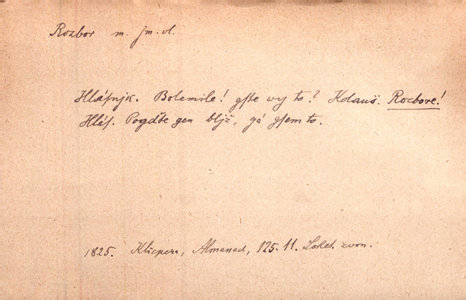 Rozbor m. jm. vl.
Hlásnjk. Bolemile! gste wy to? Kolauš. Rozbore!
Hlás. Pogďte gen bljž, gá gsem to.
1825. Klicpera, Almanach, 125. 11. Loket zvon.